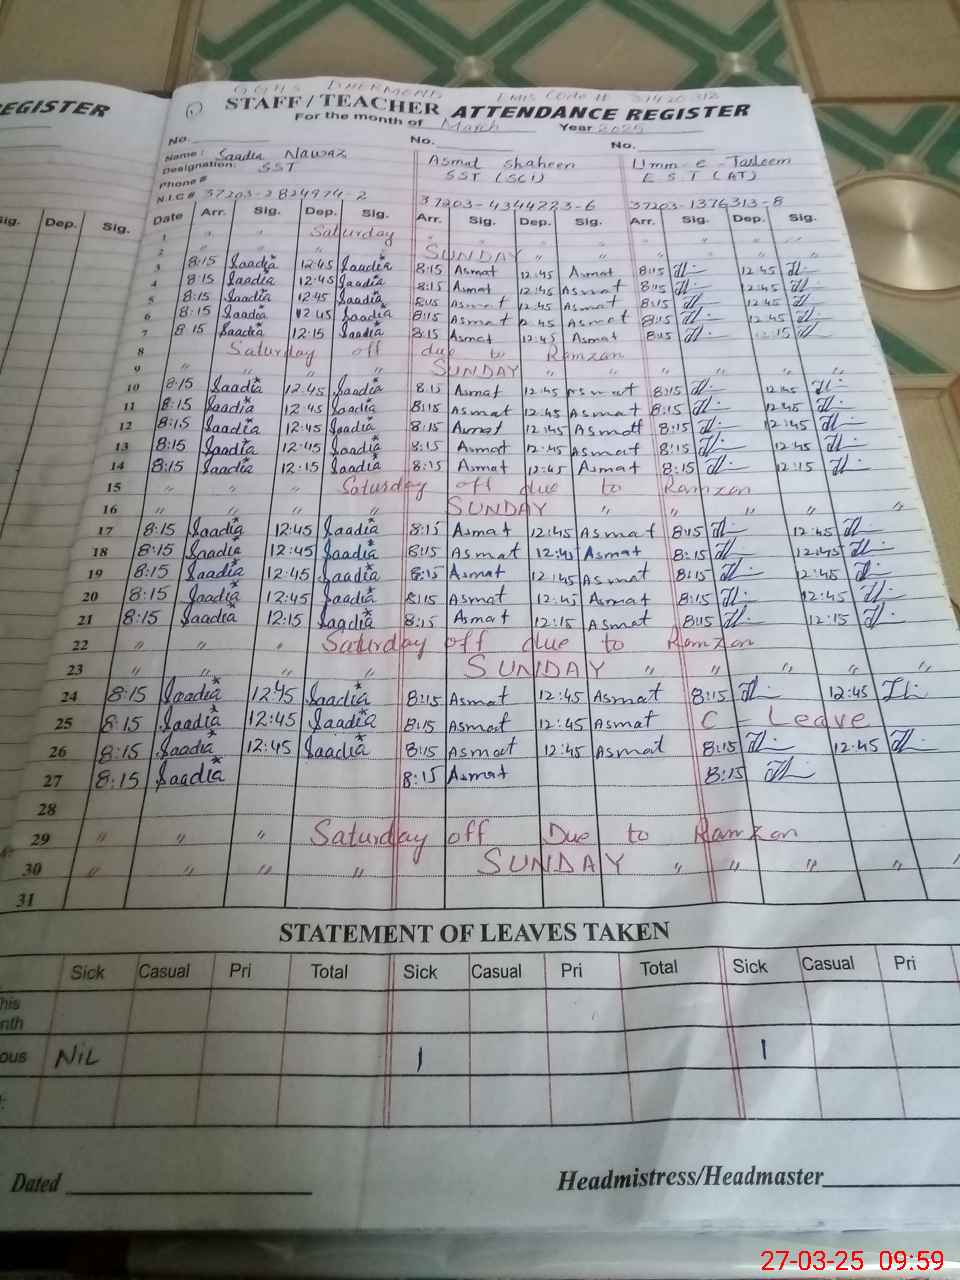 GGHS DHERMOND EMIS Code # 37420312
EGISTER
STAFF/TEACHER ATTENDANCE REGISTER
For the month of March Year 2025
No. No. No.
Name: Saadia Nawaz Asmat Shaheen Umm-e-Tasleem
Designation: SST SST (SCI) E.S.T (AT)
Phone #
N.I.C # 37203-2824974-2 37203-4344223-6 37203-1376313-8
ig. Dep. Sig. Date Arr. Sig. Dep. Sig. Arr. Sig. Dep. Sig. Arr. Sig. Dep. Sig.
1 " " Saturday " " " "
2 " " " " SUNDAY " " " " "
3 8:15 Saadia 12:45 Saadia 8:15 Asmat 12:45 Asmat 8:15 12:45
4 8:15 Saadia 12:45 Saadia 8:15 Asmat 12:45 Asmat 8:15 12:45
5 8:15 Saadia 12:45 Saadia 8:15 Asmat 12:45 Asmat 8:15 12:45
6 8:15 Saadia 12:45 Saadia 8:15 Asmat 12:45 Asmat 8:15 12:45
7 8:15 Saadia 12:15 Saadia 8:15 Asmat 12:45 Asmat 8:15 12:15
8 Saturday off due to Ramzan
9 " " " " SUNDAY " " " " "
10 8:15 Saadia 12:45 Saadia 8:15 Asmat 12:45 Asmat 8:15 12:45
11 8:15 Saadia 12:45 Saadia 8:15 Asmat 12:45 Asmat 8:15 12:45
12 8:15 Saadia 12:45 Saadia 8:15 Asmat 12:45 Asmatt 8:15 12:45
13 8:15 Saadia 12:45 Saadia 8:15 Asmat 12:45 Asmat 8:15 12:45
14 8:15 Saadia 12:15 Saadia 8:15 Asmat 12:45 Asmat 8:15 12:15
15 " " " Saturday off due to Ramzan
16 " " " " SUNDAY " " " " "
17 8:15 Saadia 12:45 Saadia 8:15 Asmat 12:45 Asmat 8:15 12:45
18 8:15 Saadia 12:45 Saadia 8:15 Asmat 12:45 Asmat 8:15 12:45
19 8:15 Saadia 12:45 Saadia 8:15 Asmat 12:45 Asmat 8:15 12:45
20 8:15 Saadia 12:45 Saadia 8:15 Asmat 12:45 Asmat 8:15 12:45
21 8:15 Saadia 12:15 Saadia 8:15 Asmat 12:15 Asmat 8:15 12:15
22 " " " Saturday off due to Ramzan
23 " " " " SUNDAY " " " "
24 8:15 Saadia 12:45 Saadia 8:15 Asmat 12:45 Asmat 8:15 12:45
25 8:15 Saadia 12:45 Saadia 8:15 Asmat 12:45 Asmat C - Leave
26 8:15 Saadia 12:45 Saadia 8:15 Asmat 12:45 Asmat 8:15 12:45
27 8:15 Saadia 8:15 Asmat 8:15
28
29 " " " Saturday off Due to Ramzan
30 " " " " SUNDAY " " " "
31
STATEMENT OF LEAVES TAKEN
Sick Casual Pri Total Sick Casual Pri Total Sick Casual Pri
his
nth
ous NiL 1 1
Dated Headmistress/Headmaster
27-03-25 09:59